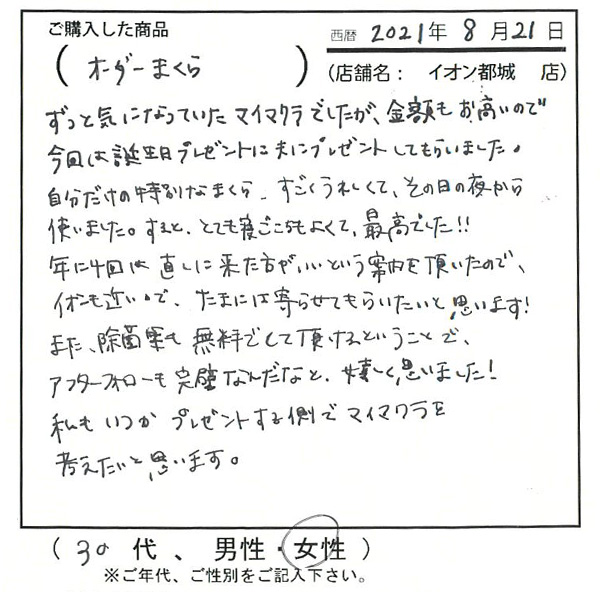 ご購入した商品
西暦 2021年 8月21日
(オーダーまくら)
(店舗名： イオン都城 店)
ずっと気になっていたマイマクラでしたが、金額もお高いので
今回は誕生日プレゼントに夫にプレゼントしてもらいました。
自分だけの特別なまくら、すごくうれしくて、その日の夜から
使いました。すると、とても寝ごこちもよくて、最高でした!!
年に4回は直しに来た方がいいという案内を頂いたので、
イオンも近いので、たまには寄らせてもらいたいと思います!
また、除菌業も無料でして頂けるということで、
アフターフォローも完璧なんだなと、嬉しく思いました!
私もいつかプレゼントする側でマイマクラを
考えたいと思います。
(30代、男性・女性)
※ご年代、ご性別をご記入下さい。